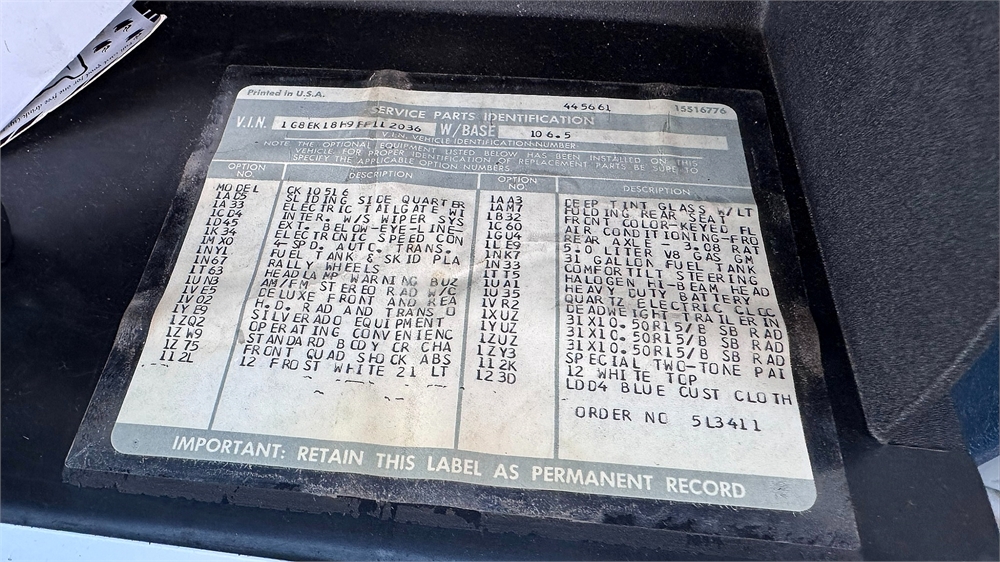 Printed in U.S.A. 445661 15516776
SERVICE PARTS IDENTIFICATION
V.I.N. 1G8EK18H9FF112036 W/BASE 106.5
V.I.N. VEHICLE IDENTIFICATION NUMBER.
NOTE THE OPTIONAL EQUIPMENT LISTED BELOW HAS BEEN INSTALLED ON THIS
VEHICLE. FOR PROPER IDENTIFICATION OF REPLACEMENT PARTS BE SURE TO
SPECIFY THE APPLICABLE OPTION NUMBERS.
OPTION NO. DESCRIPTION
MODEL CK10516
1AD5 SLIDING SIDE QUARTER
1A33 ELECTRIC TAILGATE WI
1CD4 INTER. W/S WIPER SYS
1D45 EXT. BELOW-EYE-LINE-
1K34 ELECTRONIC SPEED CON
1MX0 4-SPD. AUTO. TRANS.
1NY1 FUEL TANK & SKID PLA
1N67 RALLY WHEELS
1T63 HEADLAMP WARNING BUZ
1UN3 AM/FM STEREO RAD W/C
1VE5 DELUXE FRONT AND REA
1V02 H.D. RAD AND TRANS O
1YE9 SILVERADO EQUIPMENT
1ZQ2 OPERATING CONVENIENC
1ZW9 STANDARD BODY OR CHA
1Z75 FRONT QUAD SHOCK ABS
112L 12 FROST WHITE 21 LT
OPTION NO. DESCRIPTION
1AA3 DEEP TINT GLASS W/LT
1AM7 FOLDING REAR SEAT
1B32 FRONT COLOR-KEYED FL
1C60 AIR CONDITIONING-FRO
1GU4 REAR AXLE - 3.08 RAT
1LE9 5.0 LITER V8 GAS GM
1NK7 31 GALLON FUEL TANK
1N33 COMFORTILT STEERING
1TT5 HALOGEN HI-BEAM HEAD
1UA1 HEAVY DUTY BATTERY
1U35 QUARTZ ELECTRIC CLOC
1VR2 DEADWEIGHT TRAILER IN
1XUZ 31X10.50R15/B SB RAD
1YUZ 31X10.50R15/B SB RAD
1ZUZ 31X10.50R15/B SB RAD
1ZY3 SPECIAL TWO-TONE PAI
112K 12 WHITE TOP
123D LDD4 BLUE CUST CLOTH
ORDER NO 5L3411
IMPORTANT: RETAIN THIS LABEL AS PERMANENT RECORD